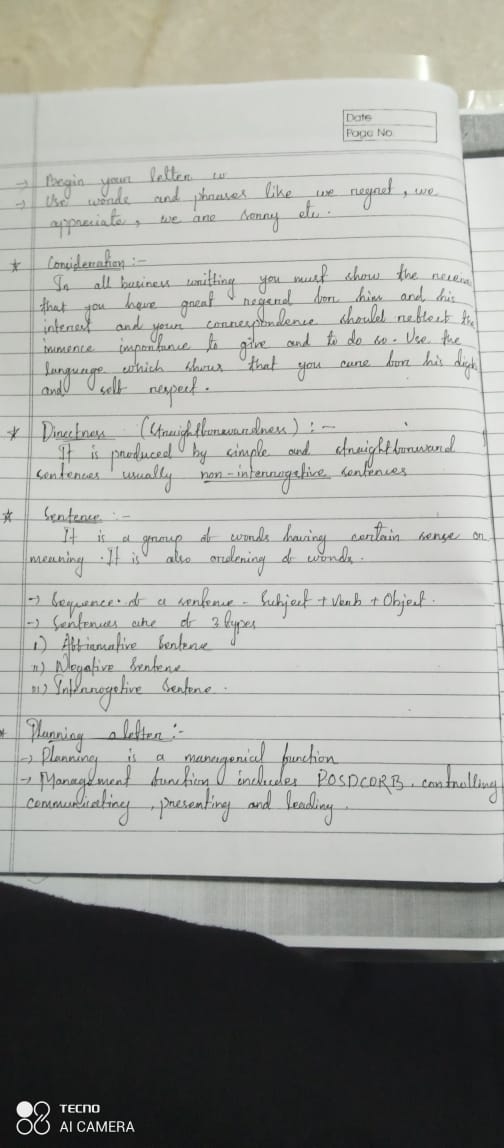 Date
Page No.
→ Begin your letter w
→ Use words and phrases like we regret, we
appreciate, we are sorry etc.
* Consideration :-
In all business writting you must show the receive
that you have great regard for him and his
interest and your correspondence should reflect the
immence importance to give and to do so. Use the
language which shows that you care for his digni
and self respect.
* Directness (Straightforwardness) : -
It is produced by simple and straightforward
sentences usually non-interrogative sentences
* Sentence :-
It is a group of words having certain sense or
meaning. It is also ordering of words.
→ Sequence of a sentence - Subject + Verb + Object.
→ Sentences are of 3 types
i) Affirmative Sentence
ii) Negative Sentene
iii) Interrogative Sentene.
* Planning a letter :-
→ Planning is a managerial function
→ Management function includes POSDCORB, controlling
communicating, presenting and leading.
TECNO
AI CAMERA